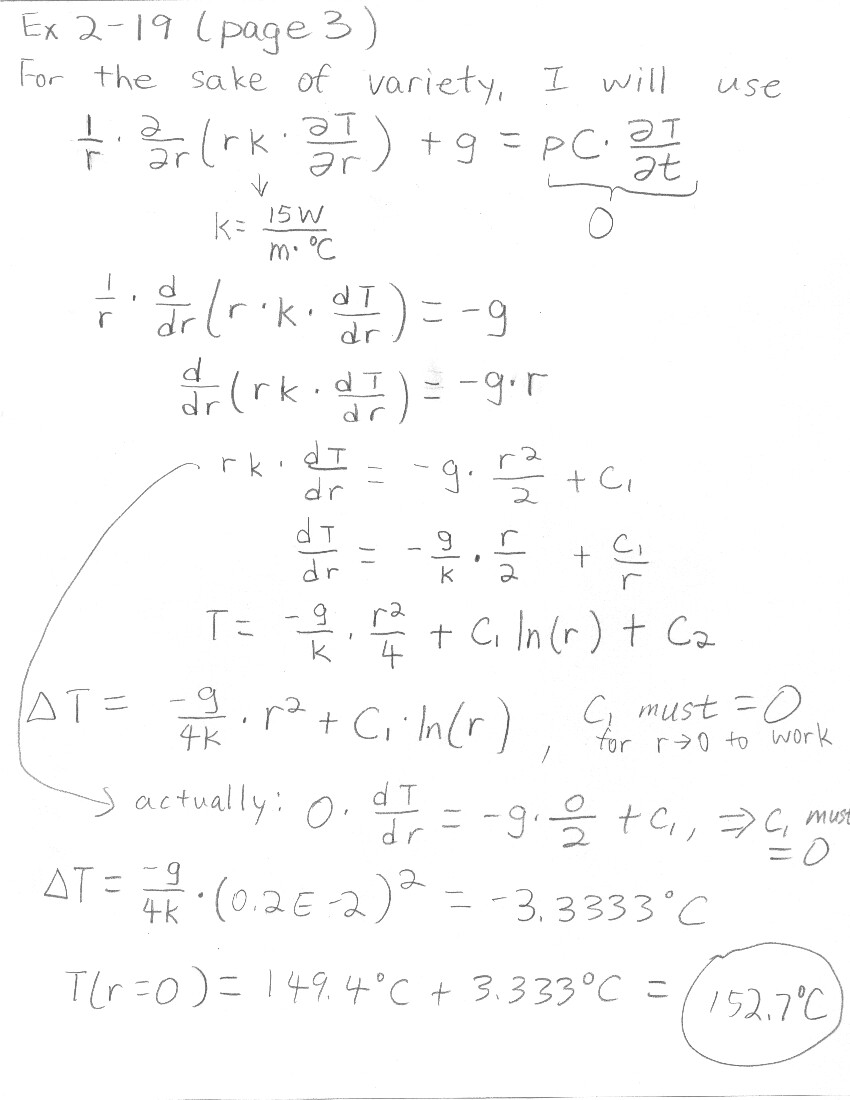 Ex 2-19 (page 3)
For the sake of variety, I will use
1/r · ∂/∂r (rk · ∂T/∂r) + g = ρC · ∂T/∂t
0
k = 15W/m·°C
1/r · d/dr (r · k · dT/dr) = -g
d/dr (rk · dT/dr) = -g·r
rk · dT/dr = -g · r²/2 + C₁
dT/dr = -g/k · r/2 + C₁/r
T = -g/k · r²/4 + C₁ ln(r) + C₂
ΔT = -g/4k · r² + C₁·ln(r), C₁ must = 0
for r→0 to work
→ actually: 0 · dT/dr = -g · 0/2 + C₁, ⇒ C₁ must
= 0
ΔT = -g/4k · (0.2E-2)² = -3.3333°C
T(r=0) = 149.4°C + 3.333°C = 152.7°C